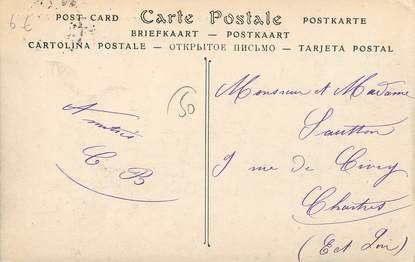 6€
POST CARD Carte Postale POSTKARTE
BRIEFKAART — POSTKAART
CARTOLINA POSTALE — ОТКРЫТОЕ ПИСЬМО — TARJETA POSTAL
50
Monsieur et Madame
9 rue de Civry
Chartres
(Eet Loir)
Amitiés
C B